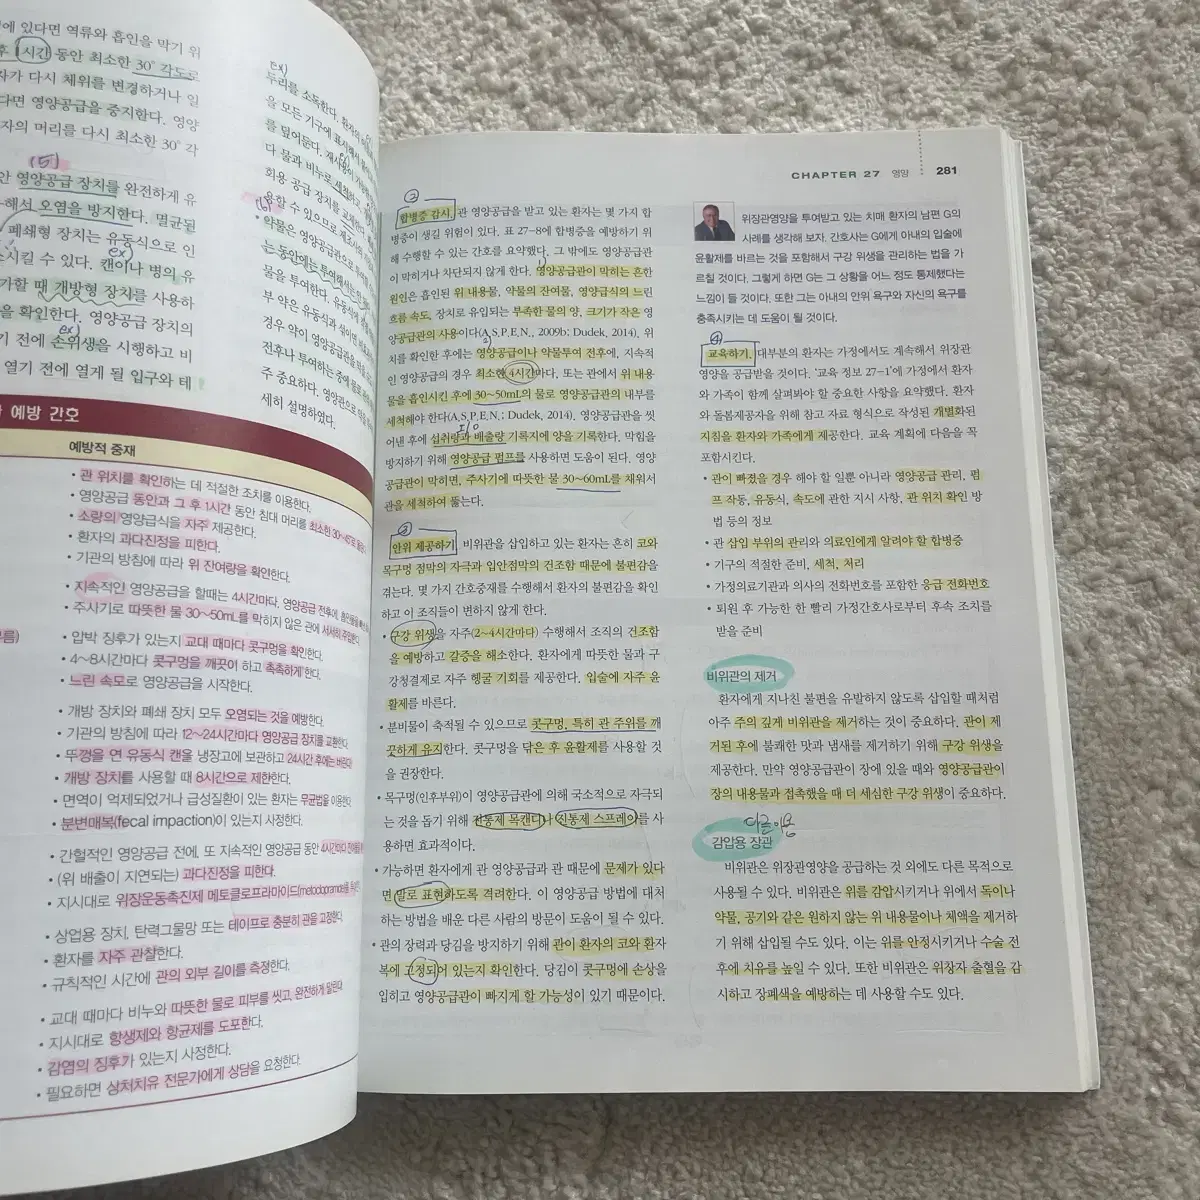 에 있다면 역류와 흡인을 막기 위
후 1시간 동안 최소한 30° 각도로
자가 다시 체위를 변경하거나 일
다면 영양공급을 중지한다. 영양
자의 머리를 다시 최소한 30° 각
(5)
안 영양공급 장치를 완전하게 유
해서 오염을 방지한다. 멸균된
폐쇄형 장치는 유동식으로 인
ex)
시킬 수 있다. 캔이나 병의 유
가할 때 개방형 장치를 사용하
을 확인한다. 영양공급 장치의
ex)
기 전에 손위생을 시행하고 비
열기 전에 열게 될 입구와 테
ex)
두리를 소독한다. 환자의
을 모든 기구에 표시해서
를 덮어둔다. 재사용이
다 물과 비누로 세척하고,
회용 공급 장치를 교체
용할 수 있으므로 제조사의
(6)
• 약물은 영양공급관으로 투여
는 동안에는 투여해서는 안
물을 투여한다. 유동식
부 약은 유동식과 섞이면
경우 약이 영양공급관을
전후나 투여하는 중에
주 중요하다. 영양관으로
세히 설명하였다.
예방 간호
예방적 중재
• 관 위치를 확인하는 데 적절한 조치를 이용한다.
• 영양공급 동안과 그 후 1시간 동안 침대 머리를 최소한 30~45°로
• 소량의 영양급식을 자주 제공한다.
• 환자의 과다진정을 피한다.
• 기관의 방침에 따라 위 잔여량을 확인한다.
• 지속적인 영양공급을 할때는 4시간마다, 영양공급 전후에,
• 주사기로 따뜻한 물 30~50mL를 막히지 않은 관에 서서히 주입한다.
름)
• 압박 징후가 있는지 교대 때마다 콧구멍을 확인한다.
• 4~8시간마다 콧구멍을 깨끗이 하고 촉촉하게 한다.
• 느린 속도로 영양공급을 시작한다.
• 개방 장치와 폐쇄 장치 모두 오염되는 것을 예방한다.
• 기관의 방침에 따라 12~24시간마다 영양공급 장치를 교환한다.
• 뚜껑을 연 유동식 캔을 냉장고에 보관하고 24시간 후에는 버린다.
• 개방 장치를 사용할 때 8시간으로 제한한다.
• 면역이 억제되었거나 급성질환이 있는 환자는 무균법을 이용한다.
• 분변매복(fecal impaction)이 있는지 사정한다.
• 간헐적인 영양공급 전에, 또 지속적인 영양공급 동안 4시간마다
• (위 배출이 지연되는) 과다진정을 피한다.
• 지시대로 위장운동촉진제 메토클로프라마이드(metoclopramide)를
• 상업용 장치, 탄력그물망 또는 테이프로 충분히 관을 고정한다.
• 환자를 자주 관찰한다.
• 규칙적인 시간에 관의 외부 길이를 측정한다.
• 교대 때마다 비누와 따뜻한 물로 피부를 씻고, 완전하게 말린다
• 지시대로 항생제와 항균제를 도포한다.
• 감염의 징후가 있는지 사정한다.
• 필요하면 상처치유 전문가에게 상담을 요청한다.
CHAPTER 27 영양 281
②
합병증 감시. 관 영양공급을 받고 있는 환자는 몇 가지 합
병증이 생길 위험이 있다. 표 27-8에 합병증을 예방하기 위
해 수행할 수 있는 간호를 요약했다. 그 밖에도 영양공급관
이 막히거나 차단되지 않게 한다. 영양공급관이 막히는 흔한
원인은 흡인된 위 내용물, 약물의 잔여물, 영양급식의 느린
흐름 속도, 장치로 유입되는 부족한 물의 양, 크기가 작은 영
양공급관의 사용이다(A.S.P.E.N., 2009b; Dudek, 2014). 위
치를 확인한 후에는 영양공급이나 약물투여 전후에, 지속적
인 영양공급의 경우 최소한 4시간마다, 또는 관에서 위 내용
물을 흡인시킨 후에 30~50mL의 물로 영양공급관의 내부를
세척해야 한다(A.S.P.E.N.; Dudek, 2014). 영양공급관을 씻
I/O
어낸 후에 섭취량과 배출량 기록지에 양을 기록한다. 막힘을
방지하기 위해 영양공급 펌프를 사용하면 도움이 된다. 영양
공급관이 막히면, 주사기에 따뜻한 물 30~60mL를 채워서
관을 세척하여 뚫는다.
③
안위 제공하기. 비위관을 삽입하고 있는 환자는 흔히 코와
목구멍 점막의 자극과 입안점막의 건조함 때문에 불편감을
겪는다. 몇 가지 간호중재를 수행해서 환자의 불편감을 확인
하고 이 조직들이 변하지 않게 한다.
• 구강 위생을 자주(2~4시간마다) 수행해서 조직의 건조함
을 예방하고 갈증을 해소한다. 환자에게 따뜻한 물과 구
강청결제로 자주 헹굴 기회를 제공한다. 입술에 자주 윤
활제를 바른다.
• 분비물이 축적될 수 있으므로 콧구멍, 특히 관 주위를 깨
끗하게 유지한다. 콧구멍을 닦은 후 윤활제를 사용할 것
을 권장한다.
• 목구멍(인후부위)이 영양공급관에 의해 국소적으로 자극되
는 것을 돕기 위해 진통제 목캔디나 진통제 스프레이를 사
용하면 효과적이다.
• 가능하면 환자에게 관 영양공급과 관 때문에 문제가 있다
면 말로 표현하도록 격려한다. 이 영양공급 방법에 대처
하는 방법을 배운 다른 사람의 방문이 도움이 될 수 있다.
• 관의 장력과 당김을 방지하기 위해 관이 환자의 코와 환자
복에 고정되어 있는지 확인한다. 당김이 콧구멍에 손상을
입히고 영양공급관이 빠지게 할 가능성이 있기 때문이다.
위장관영양을 투여받고 있는 치매 환자의 남편 G의
사례를 생각해 보자. 간호사는 G에게 아내의 입술에
윤활제를 바르는 것을 포함해서 구강 위생을 관리하는 법을 가
르칠 것이다. 그렇게 하면 G는 그 상황을 어느 정도 통제했다는
느낌이 들 것이다. 또한 그는 아내의 안위 욕구와 자신의 욕구를
충족시키는 데 도움이 될 것이다.
④
교육하기. 대부분의 환자는 가정에서도 계속해서 위장관
영양을 공급받을 것이다. '교육 정보 27-1'에 가정에서 환자
와 가족이 함께 살펴봐야 할 중요한 사항을 요약했다. 환자
와 돌봄제공자을 위해 참고 자료 형식으로 작성된 개별화된
지침을 환자와 가족에게 제공한다. 교육 계획에 다음을 꼭
포함시킨다.
• 관이 빠졌을 경우 해야 할 일뿐 아니라 영양공급 관리, 펌
프 작동, 유동식, 속도에 관한 지시 사항, 관 위치 확인 방
법 등의 정보
• 관 삽입 부위의 관리와 의료인에게 알려야 할 합병증
• 기구의 적절한 준비, 세척, 처리
• 가정의료기관과 의사의 전화번호를 포함한 응급 전화번호
• 퇴원 후 가능한 한 빨리 가정간호사로부터 후속 조치를
받을 준비
비위관의 제거
환자에게 지나친 불편을 유발하지 않도록 삽입할 때처럼
아주 주의 깊게 비위관을 제거하는 것이 중요하다. 관이 제
거된 후에 불쾌한 맛과 냄새를 제거하기 위해 구강 위생을
제공한다. 만약 영양공급관이 장에 있을 때와 영양공급관이
장의 내용물과 접촉했을 때 더 세심한 구강 위생이 중요하다.
다른 이용
감압용 장관
비위관은 위장관영양을 공급하는 것 외에도 다른 목적으로
사용될 수 있다. 비위관은 위를 감압시키거나 위에서 독이나
약물, 공기와 같은 원하지 않는 위 내용물이나 체액을 제거하
기 위해 삽입될 수도 있다. 이는 위를 안정시키거나 수술 전
후에 치유를 높일 수 있다. 또한 비위관은 위장자 출혈을 감
시하고 장폐색을 예방하는 데 사용할 수도 있다.